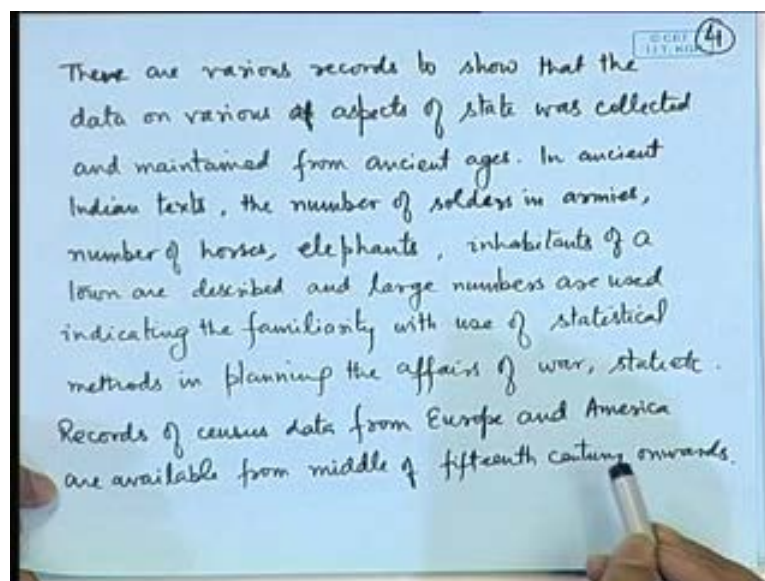 © CET
I.I.T. KGP
4
There are various records to show that the
data on various aspects of state was collected
and maintained from ancient ages. In ancient
Indian texts, the number of solders in armies,
number of horses, elephants, inhabitants of a
town are described and large numbers are used
indicating the familiarity with use of statistical
methods in planning the affairs of war, state etc.
Records of census data from Europe and America
are available from middle of fifteenth century onwards.